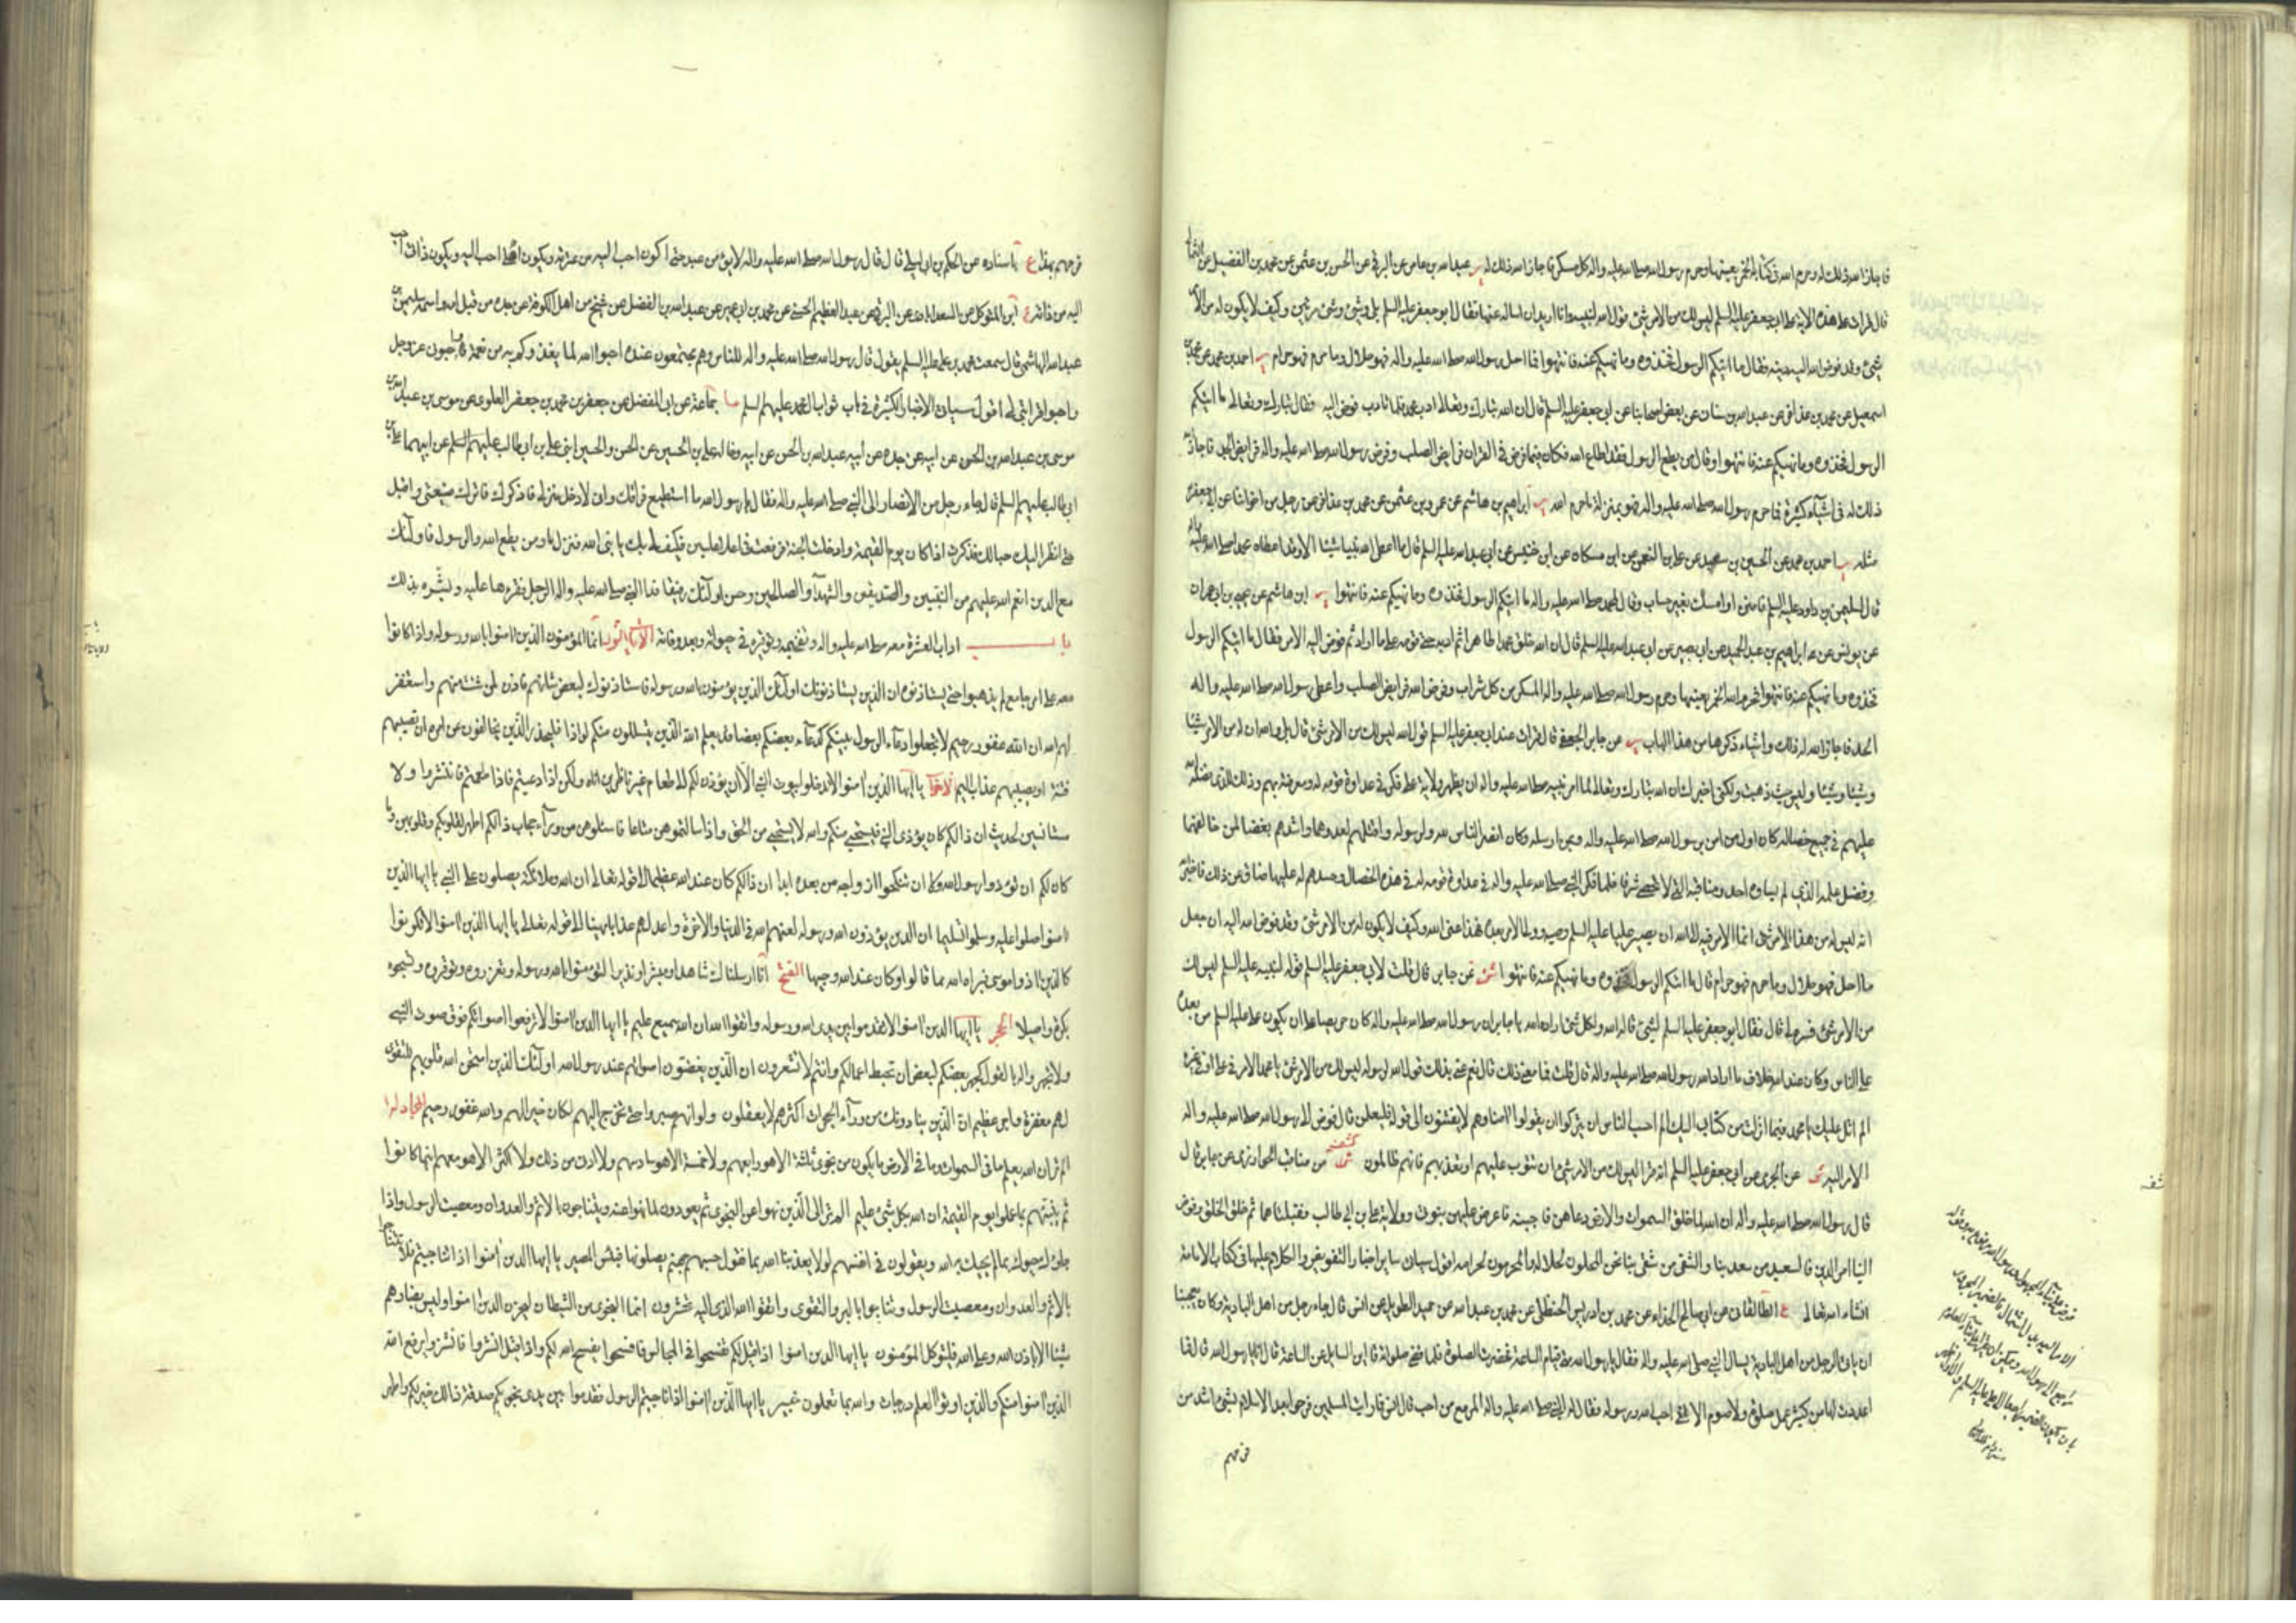 فاجاز الله ذلك له وحرم الله في كتابه الخمر بعينها وحرم رسول الله صلى الله عليه واله كل مسكر فاجاز الله ذلك له ير عبد الله بن عامر عن البرقي عن الحسن بن عثمن عن محمد بن الفضيل عن الثمالي
قال قرات هذه الاية على ابي جعفر عليه السلم ليس لك من الامر شئ قول الله لنبيه وانا اريد ان اساله عنها فقال ابو جعفر عليه السلم بل وشئ وشئ مرتين وكيف لا يكون له من الامر
شئ وقد فوض الله اليه دينه فقال ما اتيكم الرسول فخذوه وما نهيكم عنه فانتهوا فما احل رسول الله صلى الله عليه واله فهو حلال وما حرم فهو حرام ير احمد بن محمد عن محمد بن
اسمعيل عن محمد بن عذافر عن عبد الله بن سنان عن بعض اصحابنا عن ابي جعفر عليه السلم قال ان الله تبارك وتعالى ادب محمدا فلما تادب فوض اليه فقال تبارك وتعالى ما اتيكم
الرسول فخذوه وما نهيكم عنه فانتهوا وقال من يطع الرسول فقد اطاع الله فكان فيما فرض في القران فرايض الصلب وفرض رسول الله صلى الله عليه واله فرايض الجد فاجاز الله
ذلك له في اشياء كثيرة فما حرم رسول الله صلى الله عليه واله فهو بمنزلة ما حرم الله ير ابراهيم بن هاشم عن عمرو بن عثمن عن محمد بن عذافر عن رجل من اخواننا عن ابي جعفر
مثله ير احمد بن محمد عن الحسين بن سعيد عن علي بن النعمن عن ابن مسكان عن ابي عبد الله عليه السلم قال ما اعطى الله نبيا شيئا الا وقد اعطاه محمدا صلى الله عليه واله
قال لسليمن بن داود عليه السلم فامنن او امسك بغير حساب وقال لمحمد صلى الله عليه واله ما اتيكم الرسول فخذوه وما نهيكم عنه فانتهوا ير ابن هاشم عن يحيى بن ابي عمران
عن يونس عن ابراهيم بن عبد الحميد عن ابي بصير عن ابي عبد الله عليه السلم قال ان الله خلق محمدا طاهرا ثم ادبه حتى قومه على ما اراد ثم فوض اليه الامر فقال ما اتيكم الرسول
فخذوه وما نهيكم عنه فانتهوا فحرم الله الخمر بعينها وحرم رسول الله صلى الله عليه واله المسكر من كل شراب وفرض الله فرايض الصلب واعطى رسول الله صلى الله عليه واله
الجد فاجاز الله له ذلك واشياء ذكرها من هذا الباب ير عن جابر الجعفي قال قرات عند ابي جعفر عليه السلم قول الله ليس لك من الامر شئ قال بلى والله ان له من الامر شيئا
وشيئا وشيئا وليس حيث ذهبت ولكني اخبرك ان الله تبارك وتعالى لما امر نبيه صلى الله عليه واله ان يظهر ولاية علي فكر في عداوة قومه له ومعرفته بهم وذلك للذي فضله الله
عليهم في جميع خصاله كان اول من امن برسول الله صلى الله عليه واله وبمن ارسله وكان انصر الناس لله ولرسوله واقتلهم لعدوهما واشدهم بغضا لمن خالفهما
وفضل علمه الذي لم يساوه احد ومناقبه التي لا تحصى شرفا فلما فكر النبي صلى الله عليه واله في عداوة قومه له في هذه الخصال وحسدهم له عليها ضاق عن ذلك فاخبر الله
انه ليس له من هذا الامر شئ انما الامر فيه الى الله ان يصير عليا عليه السلم وصيه وولي الامر بعده فهذا عنى الله وكيف لا يكون له من الامر شئ وقد فوض الله اليه ان جعل
ما احل فهو حلال وما حرم فهو حرام قال ما اتيكم الرسول فخذوه وما نهيكم عنه فانتهوا شى عن جابر قال قلت لابي جعفر عليه السلم قوله لنبيه عليه السلم ليس لك
من الامر شئ فسره لي قال فقال ابو جعفر عليه السلم لشئ قاله الله ولشئ اراده الله يا جابر ان رسول الله صلى الله عليه واله كان حريصا على ان يكون علي عليه السلم من بعده
على الناس وكان عند الله خلاف ما اراد رسول الله صلى الله عليه واله قال قلت فما معنى ذلك قال نعم عنى بذلك قول الله لرسوله ليس لك من الامر شئ يا محمد الامر في علي او في غيره
الم اتل عليك يا محمد فيما انزلت من كتابي اليك الم احسب الناس ان يتركوا ان يقولوا امنا وهم لا يفتنون الى قوله فليعلمن قال فوض الى رسول الله صلى الله عليه واله
الامر اليه شى عن الجرمي عن ابي جعفر عليه السلم انه قرا ليس لك من الامر شئ ان تتوب عليهم او تعذبهم فانهم ظالمون كشف من مناقب الخوارزمي عن جابر قال
قال رسول الله صلى الله عليه واله ان الله لما خلق السموات والارض دعاهن فاجبنه فاعرض عليهن نبوتي وولاية علي بن ابي طالب فقبلتاهما ثم خلق الخلق وفوض
الينا امر الدين فالسعيد من سعد بنا والشقي من شقي بنا نحن المحلون لحلاله والمحرمون لحرامه اقول سيات ساير اخبار التفويض والكلام عليها في كتاب الامامة
انشاء الله تعالى ع الطالقاني عن ابي صالح الحذاء عن محمد بن ادريس الحنظلي عن محمد بن عبد الله عن حميد الطويل عن انس قال جاء رجل من اهل البادية وكان يعجبنا
ان ياتي الرجل من اهل البادية يسال النبي صلى الله عليه واله فقال يا رسول الله متى قيام الساعة فحضرت الصلوة فلما قضى صلوته قال اين السايل عن الساعة قال انا يا رسول الله قال فما
اعددت لها من كثير عمل صلوة ولا صوم الا اني احب الله ورسوله فقال له النبي صلى الله عليه واله المرء مع من احب قال انس فما رايت المسلمين فرحوا بعد الاسلام بشئ اشد من
فرحهم
فرحهم بهذا ع باسناده عن الحكم بن ابي ليلى قال قال رسول الله صلى الله عليه واله لا يؤمن عبد حتى اكون احب اليه من نفسه ويكون اهلي احب اليه ويكون ذاتي احب
اليه من ذاته ع ابن المتوكل عن السعدابادي عن البرقي عن عبد العظيم الحسني عن محمد بن ابي عمير عن عبد الله بن الفضل عن شيخ من اهل الكوفة عن جده من قبل امه واسمه سليمن بن
عبد الله الهاشمي قال سمعت محمد بن علي عليه السلم يقول قال رسول الله صلى الله عليه واله للناس وهم مجتمعون عنده احبوا الله لما يغذوكم به من نعمة واحبوني لله عز وجل
واحبوا قرابتي لي اقول سياتي الاخبار الكثيرة في باب ثواب محمد عليهم السلم ما جماعة عن ابي المفضل عن جعفر بن محمد بن جعفر العلوي عن موسى بن عبد الله بن
موسى بن عبد الله بن الحسن عن ابيه عن جده عن ابيه عبد الله بن الحسن عن ابيه وخاله علي بن الحسين عن الحسن والحسين ابني علي بن ابي طالب عليهم السلم عن ابيهما علي بن
ابي طالب عليهم السلم قال جاء رجل من الانصار الى النبي صلى الله عليه واله فقال يا رسول الله ما استطيع فراقك واني لادخل منزلي فاذكرك فاترك ضيعتي واقبل
حتى انظر اليك حبا لك فذكرت اذا كان يوم القيمة وادخلت الجنة فرفعت في اعلى عليين فكيف لي بك يا نبي الله فنزل ومن يطع الله والرسول فاولئك
مع الذين انعم الله عليهم من النبيين والصديقين والشهدآء والصالحين وحسن اولئك رفيقا فدعا النبي صلى الله عليه واله الرجل فقراها عليه وبشره بذلك
باب اداب العشرة معه صلى الله عليه واله وتفخيمه وتوقيره في حيوته وبعد وفاته الآيات النور انما المؤمنون الذين امنوا بالله ورسوله واذا كانوا
معه على امر جامع لم يذهبوا حتى يستاذنوه ان الذين يستاذنونك اولئك الذين يؤمنون بالله ورسوله فاذا استاذنوك لبعض شانهم فاذن لمن شئت منهم واستغفر
لهم الله ان الله غفور رحيم لا تجعلوا دعاء الرسول بينكم كدعاء بعضكم بعضا قد يعلم الله الذين يتسللون منكم لواذا فليحذر الذين يخالفون عن امره ان تصيبهم
فتنة او يصيبهم عذاب اليم الاحزاب يا ايها الذين امنوا لا تدخلوا بيوت النبي الا ان يؤذن لكم الى طعام غير ناظرين اناه ولكن اذا دعيتم فاذا طعمتم فانتشروا ولا
مستانسين لحديث ان ذالكم كان يؤذي النبي فيستحيي منكم والله لا يستحيي من الحق واذا سالتموهن متاعا فاسئلوهن من ورآء حجاب ذالكم اطهر لقلوبكم وقلوبهن وما
كان لكم ان تؤذوا رسول الله ولا ان تنكحوا ازواجه من بعده ابدا ان ذالكم كان عند الله عظيما الى قوله تعالى ان الله وملائكته يصلون على النبي يا ايها الذين
امنوا صلوا عليه وسلموا تسليما ان الذين يؤذون الله ورسوله لعنهم الله في الدنيا والاخرة واعد لهم عذابا مهينا الى قوله تعالى يا ايها الذين امنوا لا تكونوا
كالذين اذوا موسى فبراه الله مما قالوا وكان عند الله وجيها الفتح انا ارسلناك شاهدا ومبشرا ونذيرا لتؤمنوا بالله ورسوله وتعزروه وتوقروه وتسبحوه
بكرة واصيلا الحجر يا ايها الذين امنوا لا تقدموا بين يدي الله ورسوله واتقوا الله ان الله سميع عليم يا ايها الذين امنوا لا ترفعوا اصواتكم فوق صوت النبي
ولا تجهروا له بالقول كجهر بعضكم لبعض ان تحبط اعمالكم وانتم لا تشعرون ان الذين يغضون اصواتهم عند رسول الله اولئك الذين امتحن الله قلوبهم للتقوى
لهم مغفرة واجر عظيم ان الذين ينادونك من ورآء الحجرات اكثرهم لا يعقلون ولو انهم صبروا حتى تخرج اليهم لكان خيرا لهم والله غفور رحيم المجادلة
الم تر ان الله يعلم ما في السموات وما في الارض ما يكون من نجوى ثلثة الا هو رابعهم ولا خمسة الا هو سادسهم ولا ادنى من ذلك ولا اكثر الا هو معهم اينما كانوا
ثم ينبئهم بما عملوا يوم القيمة ان الله بكل شئ عليم الم تر الى الذين نهوا عن النجوى ثم يعودون لما نهوا عنه ويتناجون بالاثم والعدوان ومعصيت الرسول واذا
جاؤك حيوك بما لم يحيك به الله ويقولون في انفسهم لولا يعذبنا الله بما نقول حسبهم جهنم يصلونها فبئس المصير يا ايها الذين امنوا اذا تناجيتم فلا تتناجوا
بالاثم والعدوان ومعصيت الرسول وتناجوا بالبر والتقوى واتقوا الله الذي اليه تحشرون انما النجوى من الشيطان ليحزن الذين امنوا وليس بضارهم
شيئا الا باذن الله وعلى الله فليتوكل المؤمنون يا ايها الذين امنوا اذا قيل لكم تفسحوا في المجالس فافسحوا يفسح الله لكم واذا قيل انشزوا فانشزوا يرفع الله
الذين امنوا منكم والذين اوتوا العلم درجات والله بما تعملون خبير يا ايها الذين امنوا اذا ناجيتم الرسول فقدموا بين يدي نجويكم صدقة ذالك خير لكم واطهر